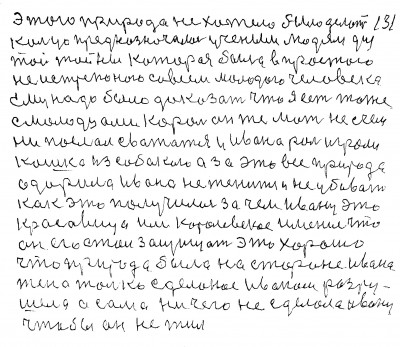 Этого природа не хотела было делат 131
колцо предназночалос ученым людям ду
той тайны которая была в простого
не испрепоного совсем молодого человека
ему надо было доказат что я ест тоже
с молодц али корол он те мог не с чем
ни послал свататся и Ивана рол играли
кошка из собакой а за это все природа
одарила Ивана не женитц и не убиват
как это получилос зачем Ивану это
красавица и им королевское имение что
он его стал защищат это хорошо
что природа была на стороне Ивана
жена толко сделоное Иваном разру-
шела а сама ничего не сделала Ивану
чтобы он не жил